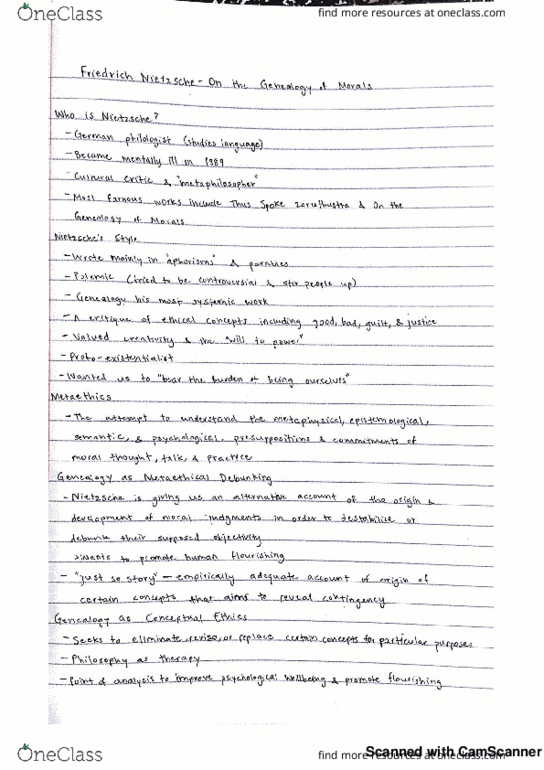 OneClass
find more resources at oneclass.com
Friedrich Nietzsche - On the Genealogy of Morals
Who is Nietzsche?
- German philologist (studies language)
- Became mentally ill in 1889
- Cultural critic & "metaphilosopher"
- Most famous works include Thus Spoke Zarathustra & On the
Genealogy of Morals
Nietzsche's Style
- Wrote mainly in "aphorisms" & parables
- Polemic (tried to be controversial & stir people up)
- Genealogy his most systemic work
- A critique of ethical concepts including good, bad, guilt, & justice
- Valued creativity & the "will to power"
- Proto-existentialist
- Wanted us to "bear the burden of being ourselves"
Metaethics
- The attempt to understand the metaphysical, epistemological,
semantic, & psychological presuppositions & commitments of
moral thought, talk, & practice
Genealogy as Metaethical Debunking
- Nietzsche is giving us an alternative account of the origin &
development of moral judgments in order to destabilize or
debunk their supposed objectivity
>Wants to promote human flourishing
- "just so story" - empirically adequate account of origin of
certain concepts that aims to reveal contingency
Genealogy as Conceptual Ethics
- Seeks to eliminate, revise, or replace certain concepts for particular purposes
- Philosophy as therapy
- Point of analysis to improve psychological wellbeing & promote flourishing
OneClass
find more resources at oneclass.com
Scanned with CamScanner